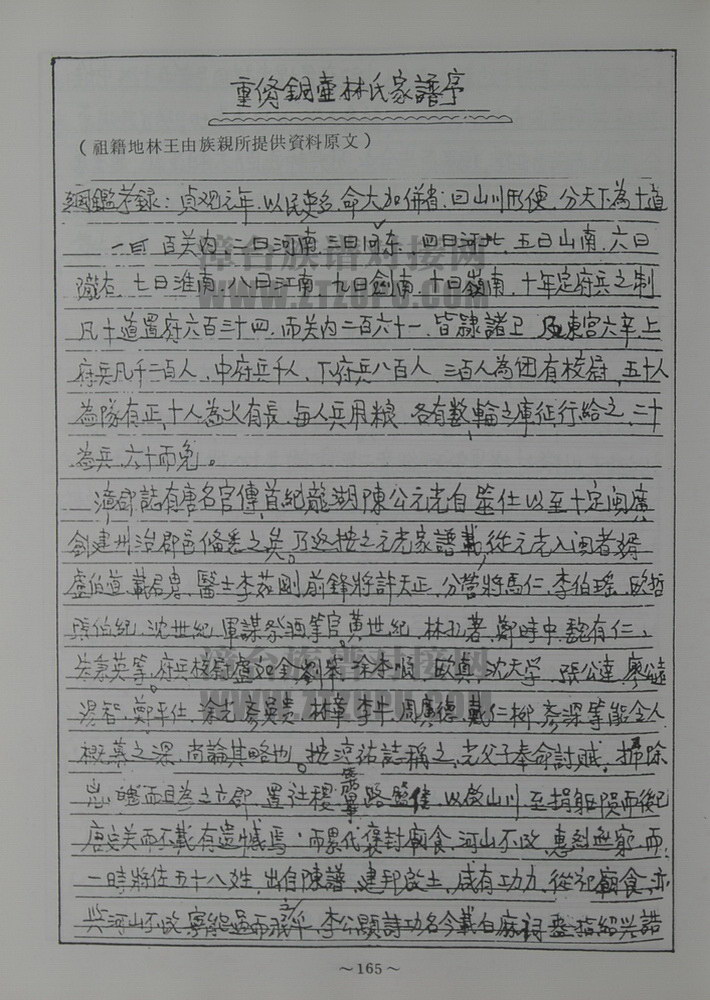 重脩銅壺林氏家譜序
（祖籍地林王由族親所提供資料原文）
綱鑑考録：貞观元年.以民吏多.命大加併省;曰山川形便.分天下為十道
一曰百关内.二曰河南三曰河东.四曰河北.五曰山南.六曰
隴右.七曰淮南.八曰江南.九曰劍南.十曰嶺南.十年定府兵之制
凡十道置府六百三十四.而关内二百六十一.皆隸諸卫及東宫六率.上
府兵凡千二百人.中府兵千人.下府兵八百人.三百人為团有校尉.五十人
為隊有正.十人為火有長.每人兵甲粮.各有数.輸之庫征行給之.二十
為兵.六十而免。
漳郡誌有唐名官傳.首紀龍湖陳公元光自筮仕以至十定闽廣
創建州治郡邑俻悉之矣.乃返按之元光家譜載,從元光入闽者婿
盧伯道.戴君胄.醫士李茹剛前鋒將許天正.分营將馬仁.李伯瑶.欧哲
張伯紀.沈世紀.軍謀祭酒等官.黄世紀.林孔著.鄭時中.魏有仁、
朱秉英等.府兵校尉盧如金劉举.涂本順.欧真.沈天学.張公達.廖公遠
湯智.鄭平仕.涂光彦吳贵.林章李牛.周廣德.戴仁柳.彦深等能令人
概慕之深.尚論其略也。按淳祐誌稱之.光父子奉命討贼.掃除
而且 之立郡.置社稷 路 .以啟山川至捐躯殒而後已
唐史美而不載有遺憾焉.而累代褒封廟食.河山不改.惠 無窮.而
一時將佐五十八姓.出自陳譜.建邦啟土.咸有功力.從祀廟食.亦
與河山不改.寧能過而 乎.李公顯詩功名今載白麻祠 指紹兴誥
漳台族谱对接网
WWW.ZTZUPU.COM
漳台族谱对接网
WWW.ZTZUPU.COM
～165～